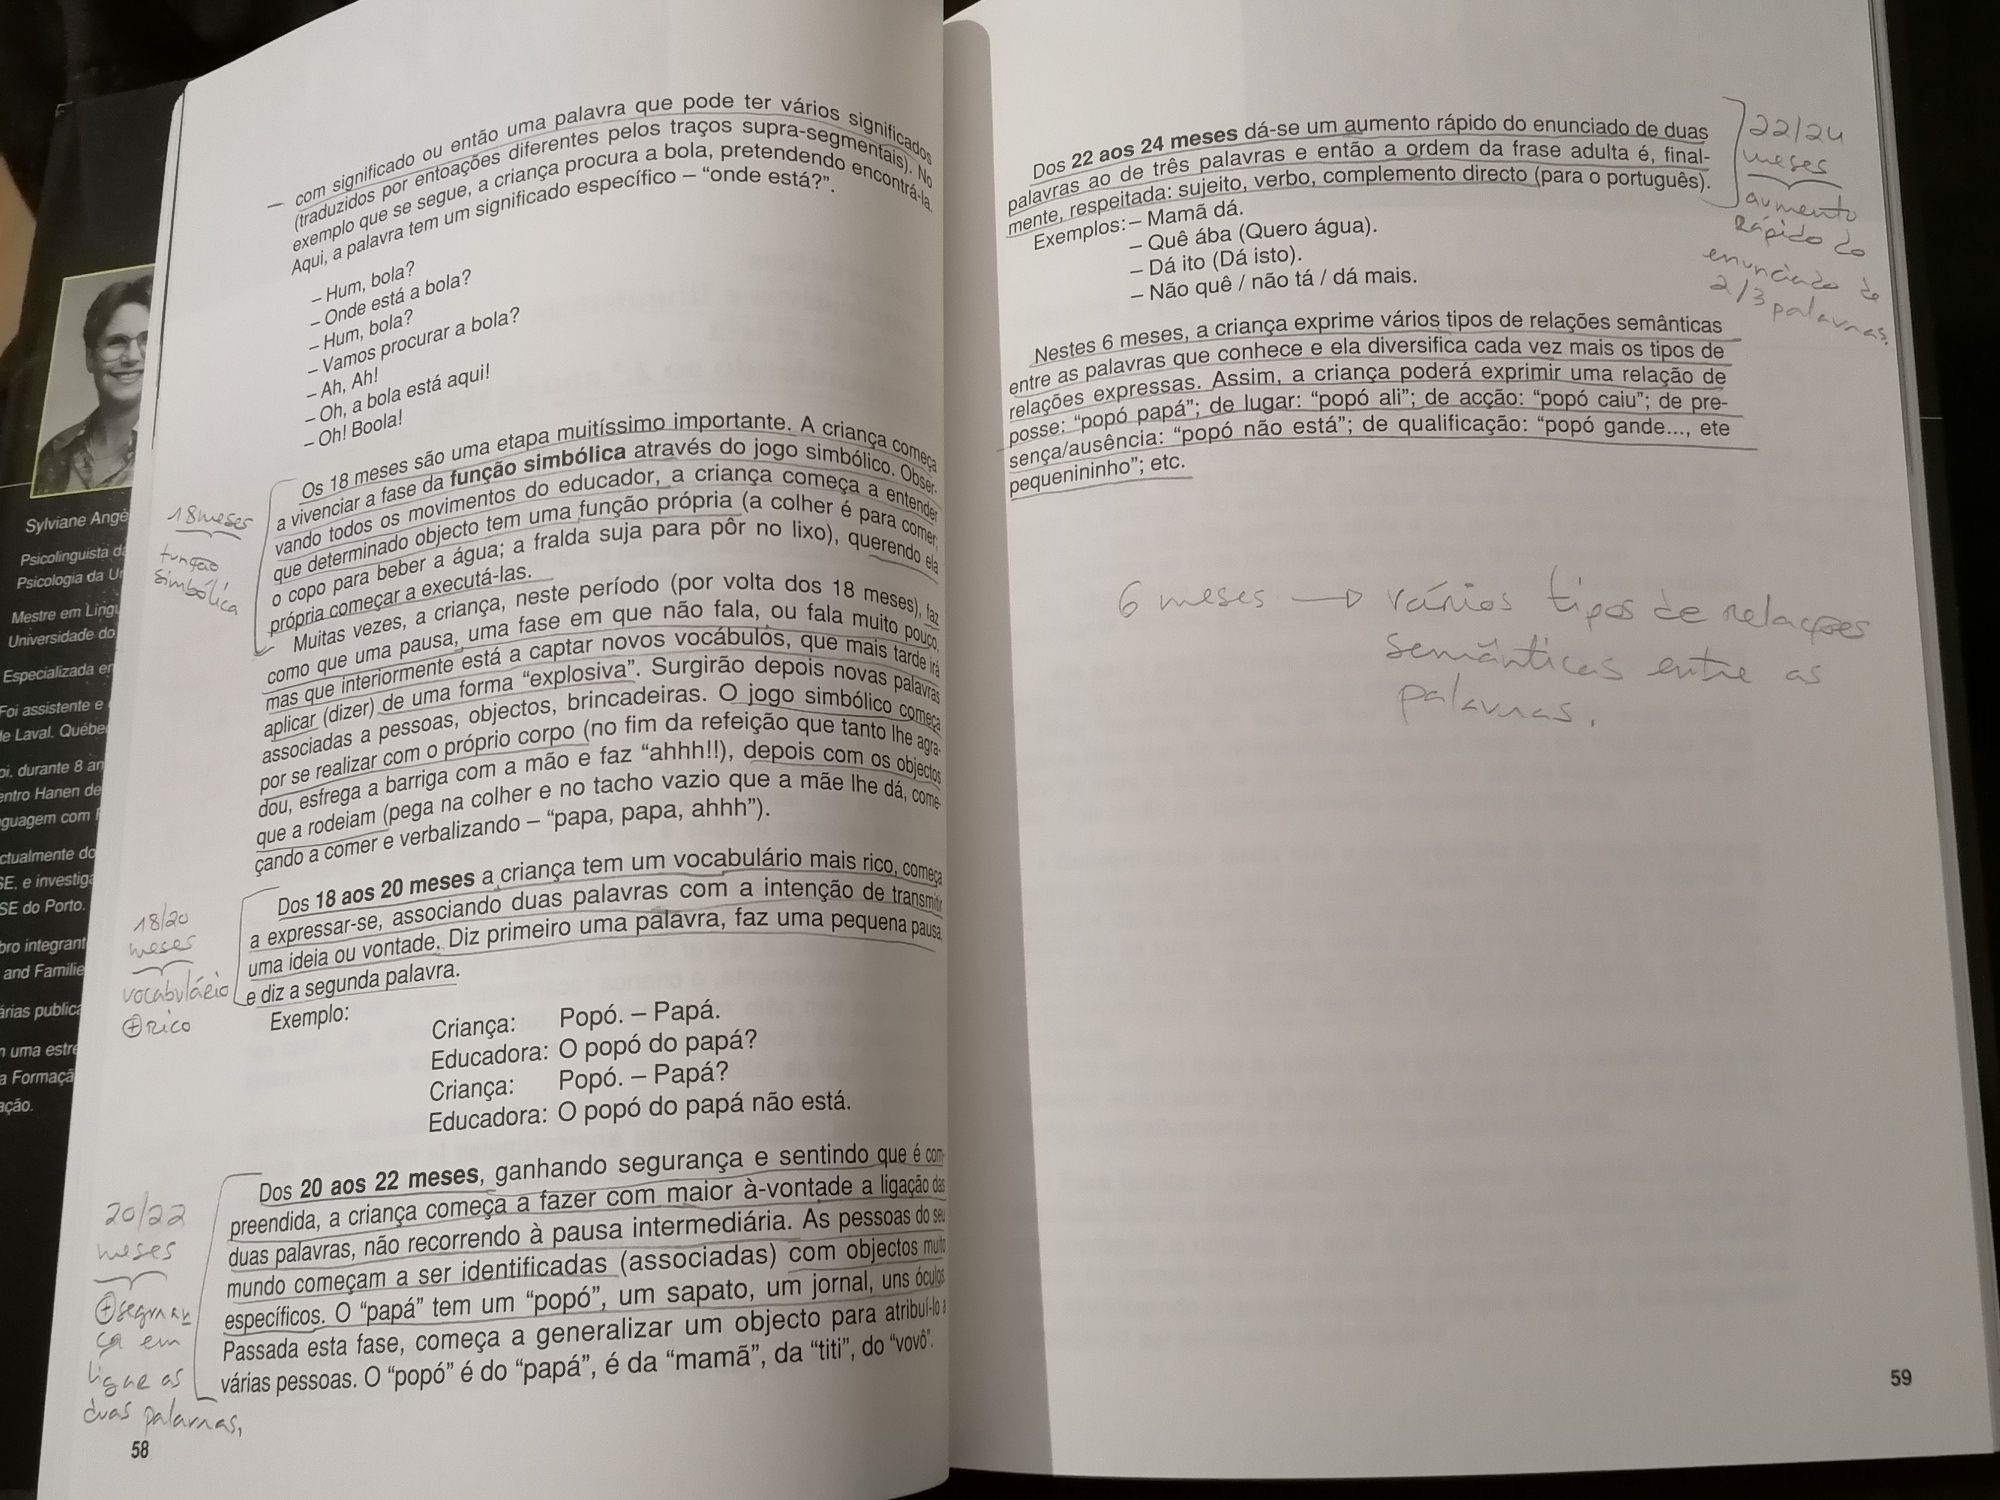 com significado ou então uma palavra que pode ter vários significados
(traduzidos por entoações diferentes pelos traços supra-segmentais). No
exemplo que se segue, a criança procura a bola, pretendendo encontrá-la.
Aqui, a palavra tem um significado específico – “onde está?”.
– Hum, bola?
– Onde está a bola?
– Hum, bola?
– Vamos procurar a bola?
– Ah, Ah!
– Oh, a bola está aqui!
– Oh! Boola!
Os 18 meses são uma etapa muitíssimo importante. A criança começa
a vivenciar a fase da função simbólica através do jogo simbólico. Obser-
vando todos os movimentos do educador, a criança começa a entender
que determinado objecto tem uma função própria (a colher é para comer;
o copo para beber a água; a fralda suja para pôr no lixo), querendo ela
própria começar a executá-las.
Muitas vezes, a criança, neste período (por volta dos 18 meses), faz
como que uma pausa, uma fase em que não fala, ou fala muito pouco,
mas que interiormente está a captar novos vocábulos, que mais tarde irá
aplicar (dizer) de uma forma “explosiva”. Surgirão depois novas palavras
associadas a pessoas, objectos, brincadeiras. O jogo simbólico começa
por se realizar com o próprio corpo (no fim da refeição que tanto lhe agra-
dou, esfrega a barriga com a mão e faz “ahhh!!), depois com os objectos
que a rodeiam (pega na colher e no tacho vazio que a mãe lhe dá, come-
çando a comer e verbalizando – “papa, papa, ahhh”).
Dos 18 aos 20 meses a criança tem um vocabulário mais rico, começa
a expressar-se, associando duas palavras com a intenção de transmitir
uma ideia ou vontade. Diz primeiro uma palavra, faz uma pequena pausa,
e diz a segunda palavra.
Exemplo:
Criança: Popó. – Papá.
Educadora: O popó do papá?
Criança: Popó. – Papá?
Educadora: O popó do papá não está.
Dos 20 aos 22 meses, ganhando segurança e sentindo que é com-
preendida, a criança começa a fazer com maior à-vontade a ligação das
duas palavras, não recorrendo à pausa intermediária. As pessoas do seu
mundo começam a ser identificadas (associadas) com objectos muito
específicos. O “papá” tem um “popó”, um sapato, um jornal, uns óculos
Passada esta fase, começa a generalizar um objecto para atribuí-lo a
várias pessoas. O “popó” é do “papá”, é da “mamã”, da “titi”, do “vovô”.
58
18 meses
função
simbólica
18/20
meses
vocabulário
+ rico
20/22
meses
+ seguran
ça em
ligue as
duas palavras,
Sylviane Angè
Psicolinguista da
Psicologia da Un
Mestre em Lingu
Universidade do
Especializada em
Foi assistente e
de Laval. Québe
oi, durante 8 an
entro Hanen de
guagem com
ctualmente do
SE, e investiga
SE do Porto.
bro integrant
and Familie
árias publica
uma estre
a Formaçã
ação.
Dos 22 aos 24 meses dá-se um aumento rápido do enunciado de duas
palavras ao de três palavras e então a ordem da frase adulta é, final-
mente, respeitada: sujeito, verbo, complemento directo (para o português).
Exemplos: – Mamã dá.
– Quê ába (Quero água).
– Dá ito (Dá isto).
– Não quê / não tá / dá mais.
Nestes 6 meses, a criança exprime vários tipos de relações semânticas
entre as palavras que conhece e ela diversifica cada vez mais os tipos de
relações expressas. Assim, a criança poderá exprimir uma relação de
posse: “popó papá”; de lugar: “popó ali”; de acção: “popó caiu”; de pre-
sença/ausência: “popó não está”; de qualificação: “popó gande..., ete
pequenininho”; etc.
22/24
meses
aumento
Rápido do
enunciado de
2/3 palavras.
6 meses → vários tipos de relações
semânticas entre as
palavras.
59